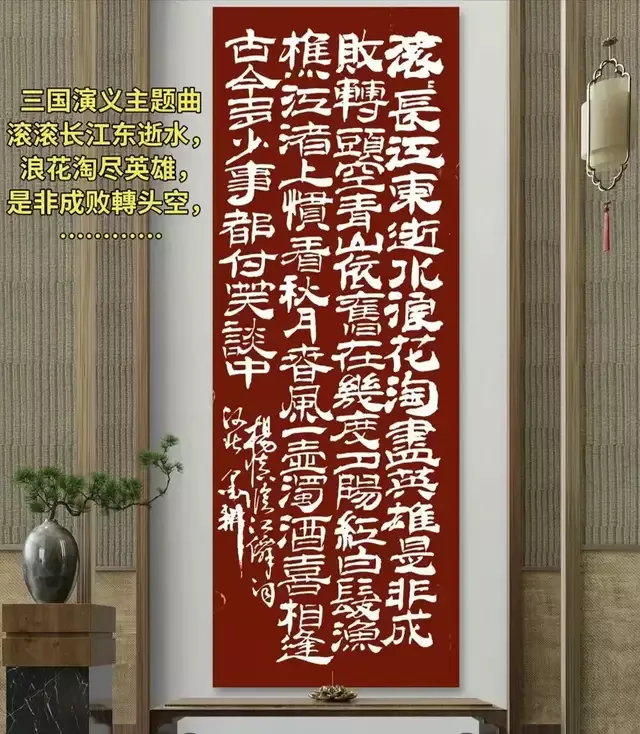 三国演义主题曲
滚滚长江东逝水，
浪花淘尽英雄，
是非成败轉头空，
…………
滚〻長江東逝水浪花淘盡英雄是非成
敗轉頭空青山依舊在幾度夕陽紅白髮漁
樵江渚上慣看秋月春風一壺濁酒喜相逢
古今多少事都付笑談中
楊慎临江僊词
墨耕